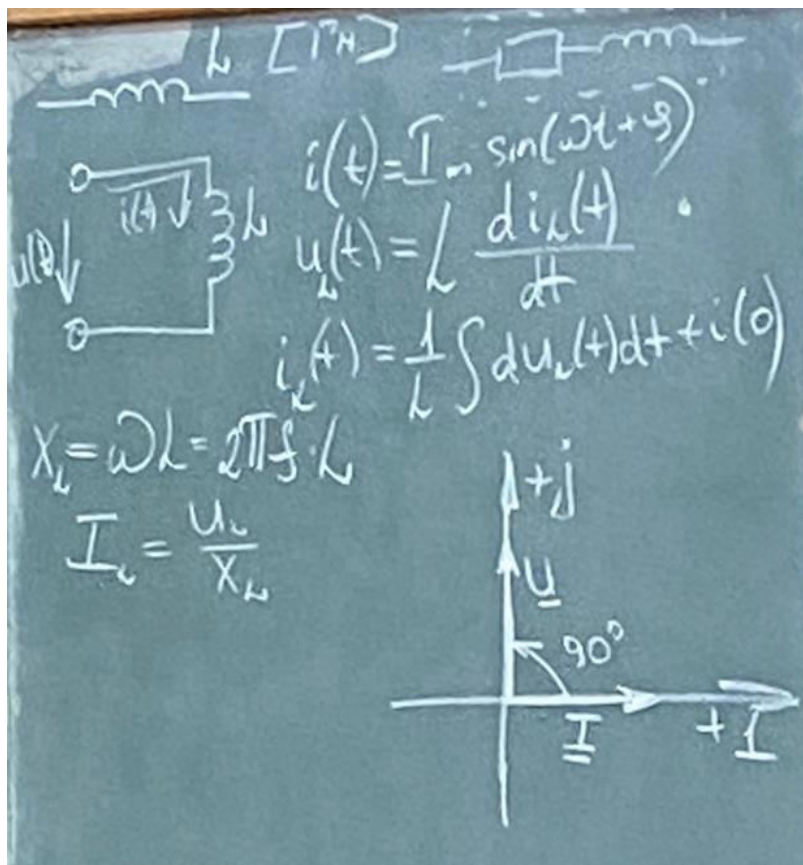 L [Гн]
i(t) = Iₘ sin(ωt + φ)
i(t) L
u(t)
u_L(t) = L di_L(t)/dt
i_L(t) = 1/L ∫ du_L(t)dt + i(0)
X_L = ωL = 2πf · L
I_L = U_L/X_L
+j
U
90°
I
+1